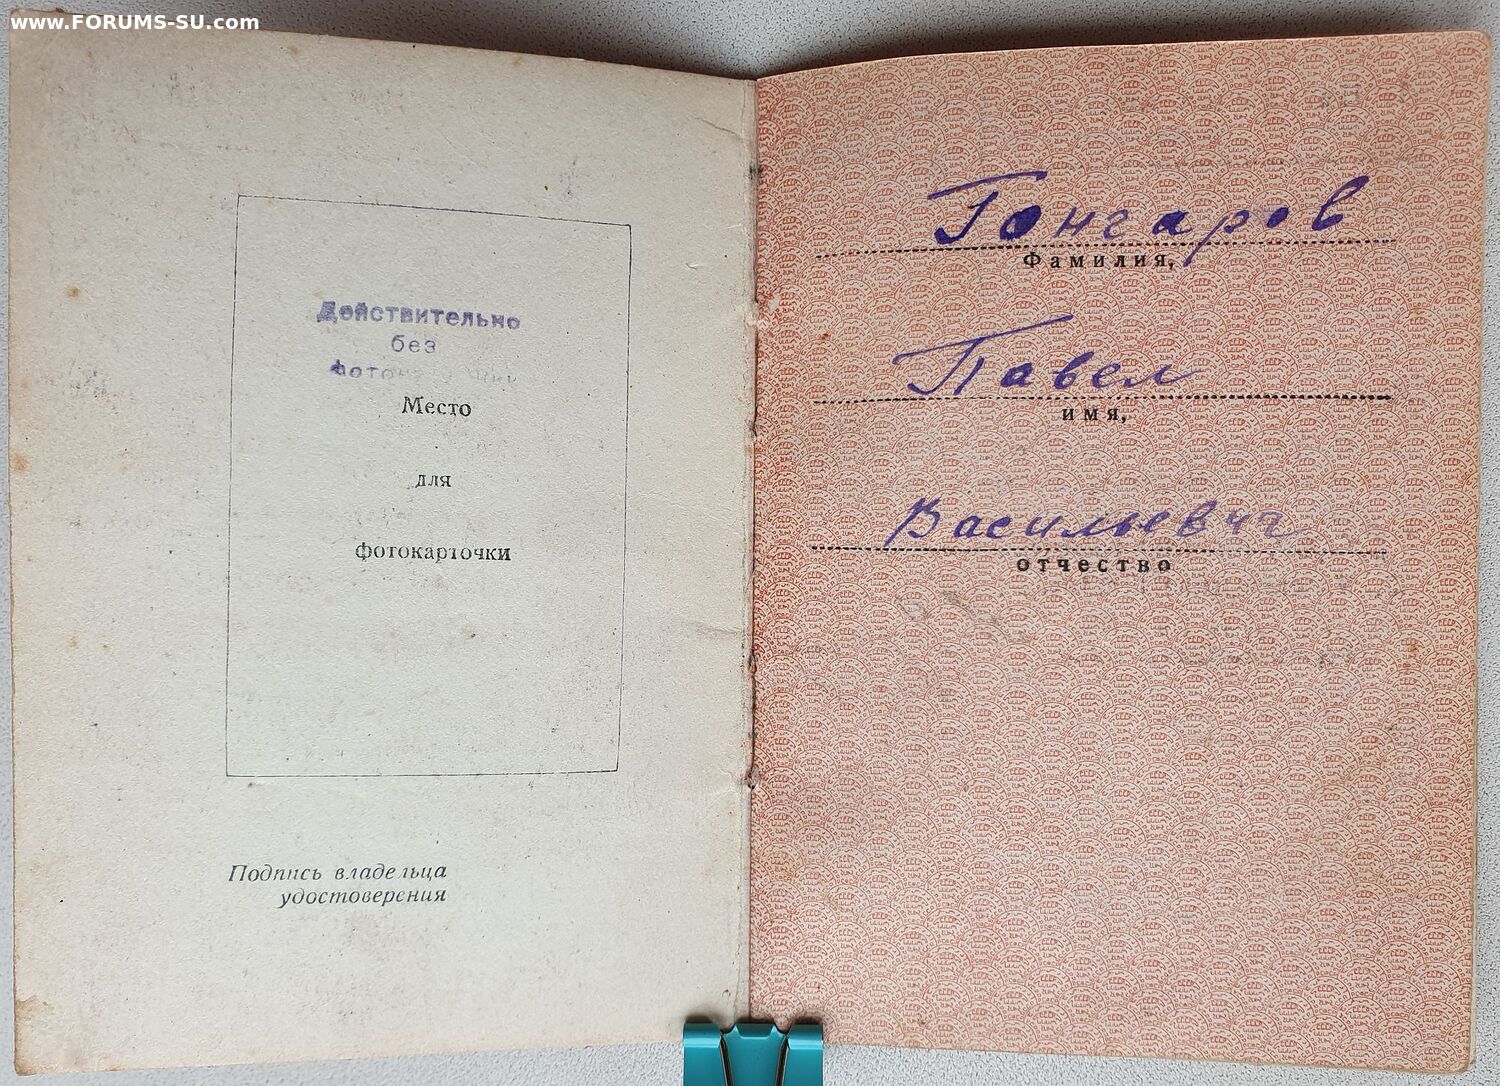 www.FORUMS-SU.com
Действительно
без
фотокарточки
Место
для
фотокарточки
Подпись владельца
удостоверения
Гончаров
Фамилия,
Павел
имя,
Васильевич
отчество